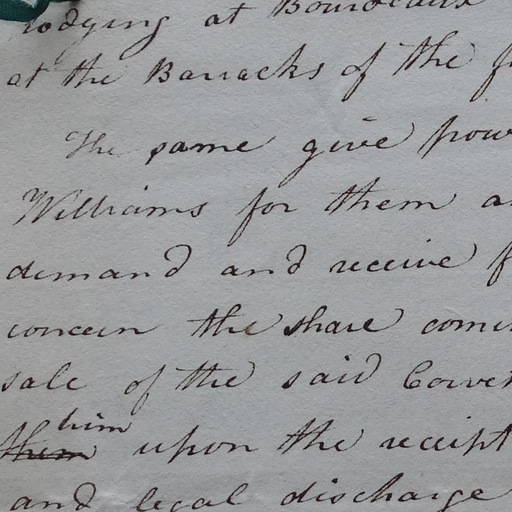 lodging at Bourdeaux
at the Barracks of the
The same give
Williams for them
demand and receive
concern the share
sale of the said
them him upon the receipt
and legal discharge